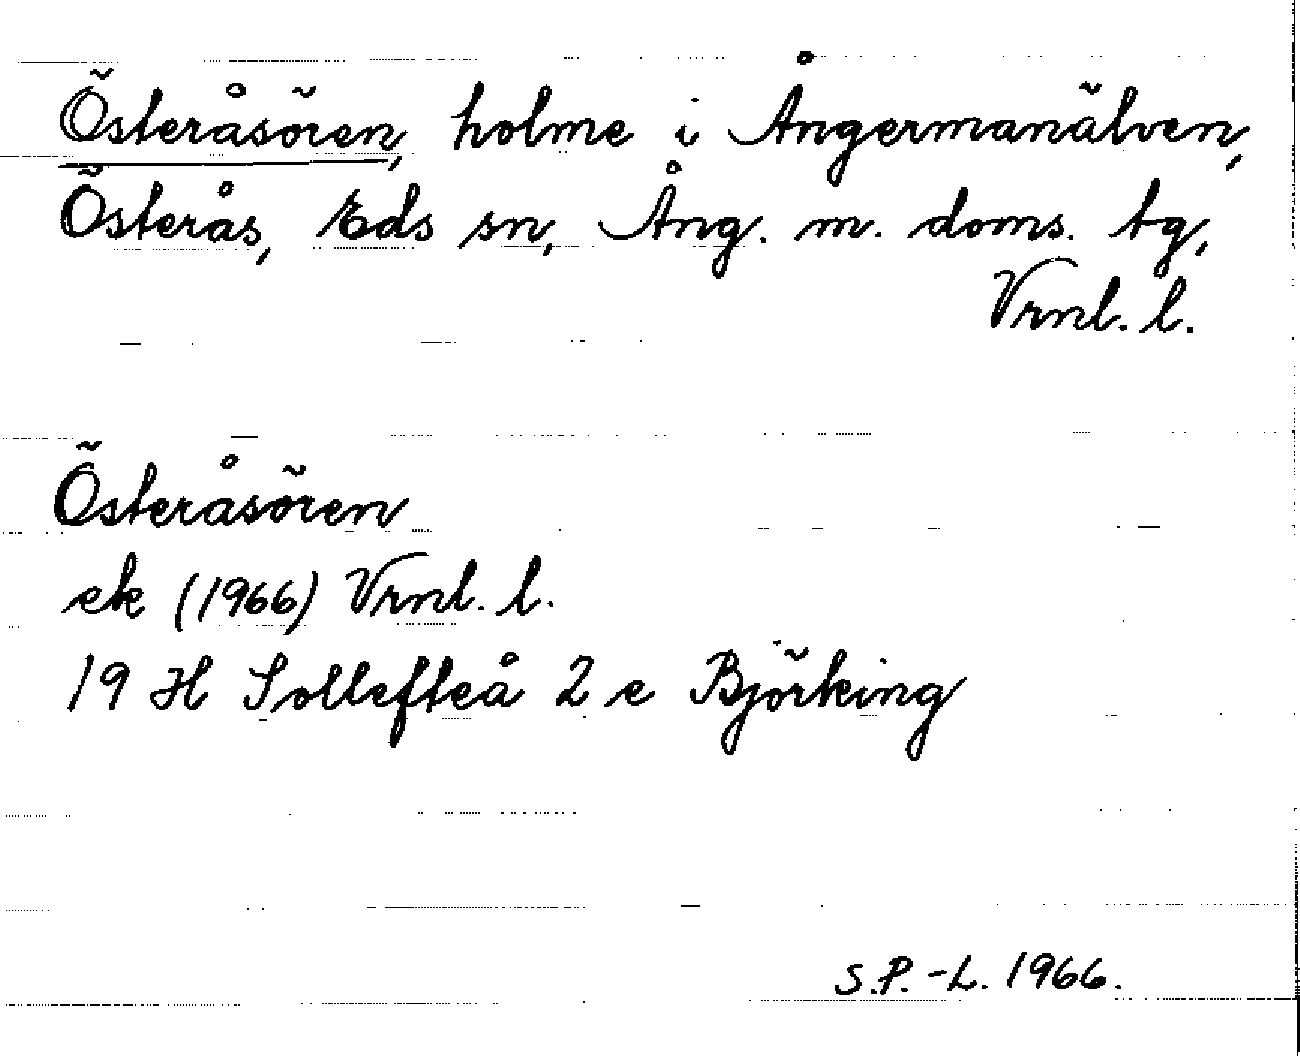 Österåsören, holme i Ångermanälven,
Österås, Eds sn, Ång. m. doms. tg,
Vrnl. l.
Österåsören
ek (1966) Vrnl. l.
19 H Sollefteå 2 e Björking
S.P.-L. 1966.